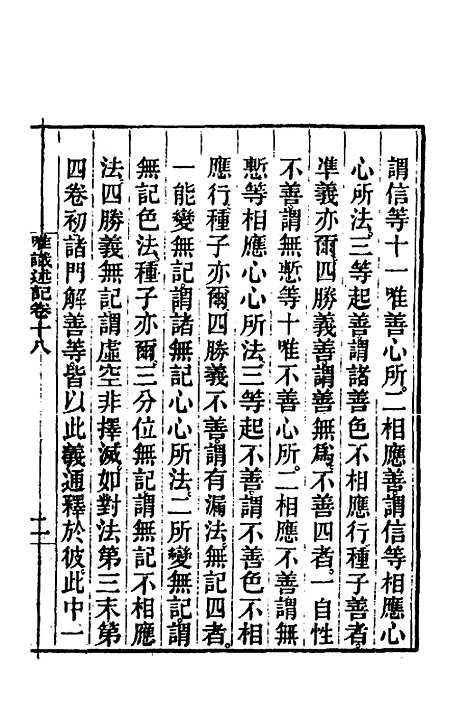 謂信等十一唯善心所。二相應善謂信等相應心
心所法。三等起善謂諸善色不相應行種子善者。
準義亦爾。四勝義善謂善無爲。不善四者。一自性
不善謂無慙等十唯不善心所。二相應不善謂無
慙等相應心心所法。三等起不善謂不善色不相
應行種子亦爾。四勝義不善謂有漏法。無記四者。
一能變無記謂諸無記心心所法。二所變無記。謂
無記色法。種子亦爾。三分位無記謂無記不相應
法。四勝義無記謂虛空非擇滅。如對法第三末第
四卷初諸門解善等皆以此義通釋於彼。此中一
唯識述記卷十八